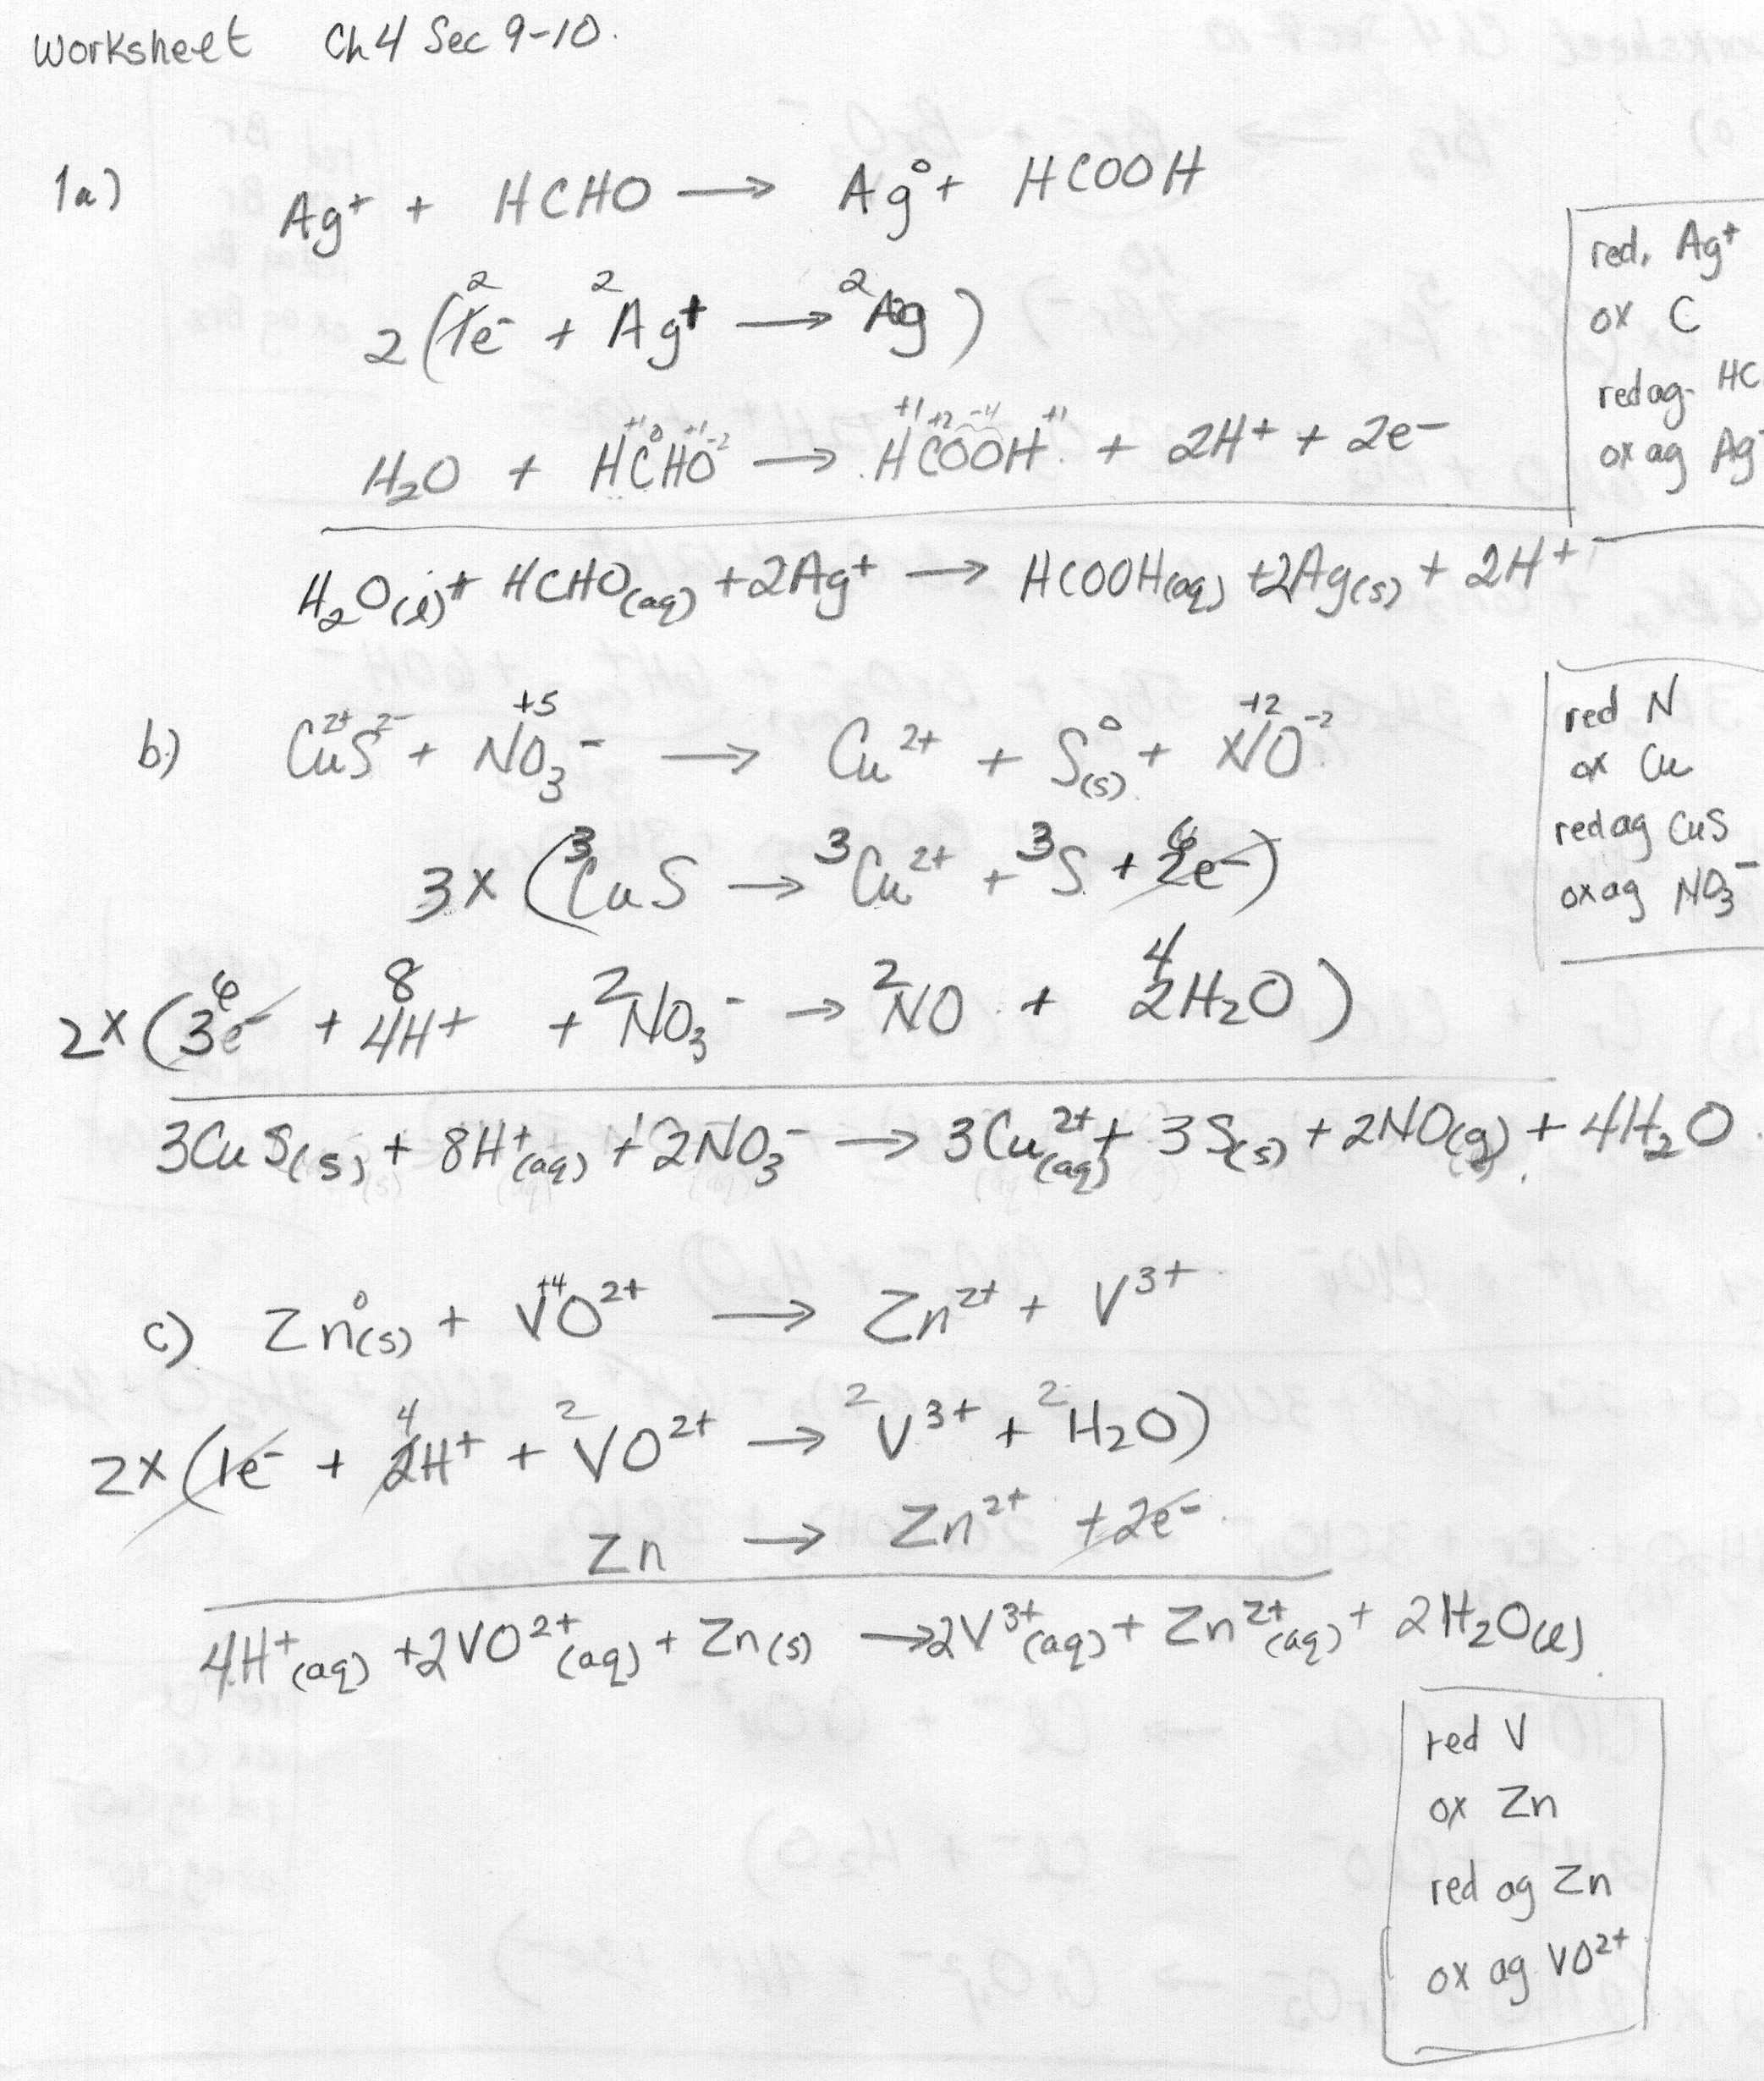 Worksheet Ch 4 Sec 9-10.
1a) Ag⁺ + HCHO → Ag⁰ + HCOOH
2 2 2
2(1e⁻ + Ag⁺ → Ag)
+1 0 +1 -2 +1 +2 -4 +1
H₂O + HCHO → HCOOH + 2H⁺ + 2e⁻
H₂O(l) + HCHO(aq) + 2Ag⁺ → HCOOH(aq) + 2Ag(s) + 2H⁺
red. Ag⁺
ox C
red ag. HC
ox ag Ag⁺
+5 +2
b) Cu²⁺S²⁻ + NO₃⁻ → Cu²⁺ + S⁰(s) + NO⁻²
3 3 3 6
3x (CuS → Cu²⁺ + S + 2e⁻)
6 8 2 2 4
2x (3e⁻ + 4H⁺ + NO₃⁻ → NO + 2H₂O)
3CuS(s) + 8H⁺(aq) + 2NO₃⁻ → 3Cu²⁺(aq) + 3S(s) + 2NO(g) + 4H₂O
red N
ox Cu
red ag CuS
ox ag NO₃⁻
0 +4
c) Zn(s) + VO²⁺ → Zn²⁺ + V³⁺
4 2 2 2
2x (1e⁻ + 2H⁺ + VO²⁺ → V³⁺ + H₂O)
Zn → Zn²⁺ + 2e⁻
4H⁺(aq) + 2VO²⁺(aq) + Zn(s) → 2V³⁺(aq) + Zn²⁺(aq) + 2H₂O(l)
red V
ox Zn
red ag Zn
ox ag VO²⁺